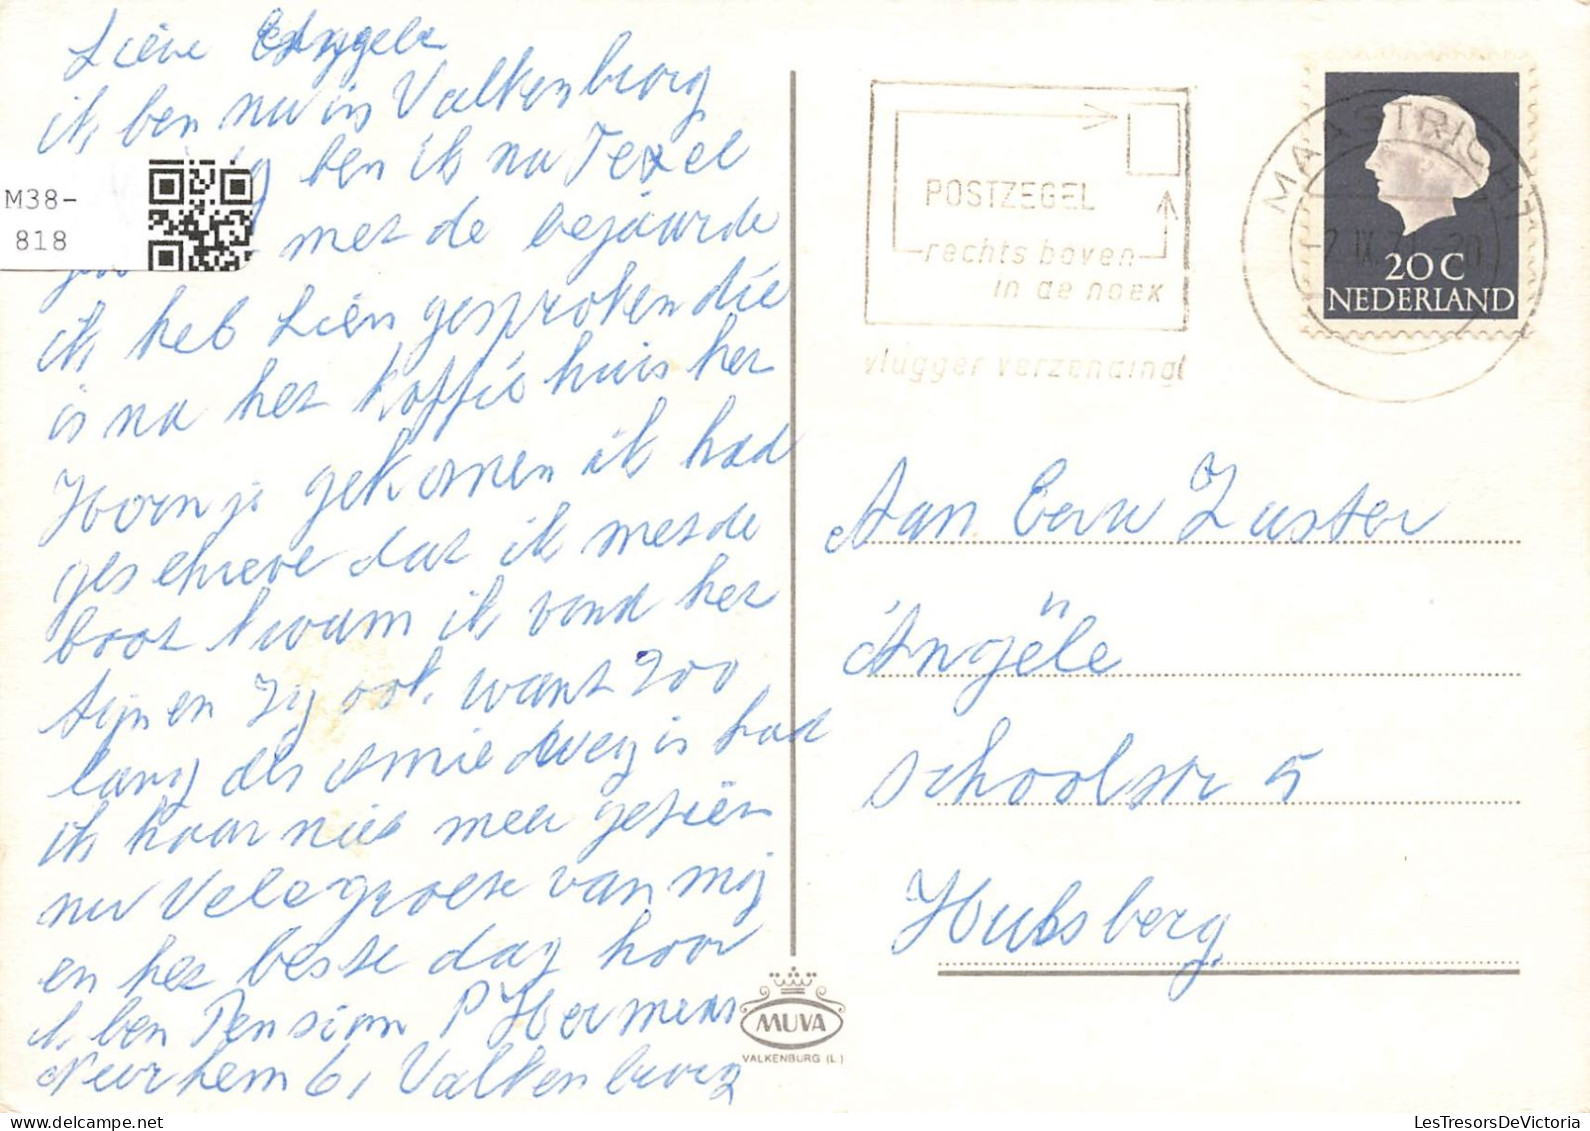 Liéve Angele
ik ben nu in Valkenburg
ben ik na Texel
met de bejaarde
ik heb Lién gesproken die
is na het koffie huis het
Hoornje gekomen ik had
geschreve dat ik met de
boot kwam ik vond het
fijn en zy ook. want zoo
lang als omie weg is had
ik haar niet meer geziën
nu Vele groete van mij
en het beste dag hoor
ik ben Pension P Hermens
Neerhem 61 Valkenburg
M38-
818
POSTZEGEL
rechts boven
in de hoek
vlugger verzending!
MAASTRICHT
20 C
NEDERLAND
Aan Eerw Zuster
Angële
schoolstr 5
Hulsberg
MUVA
VALKENBURG (L.)
LesTresorsDeVictoria